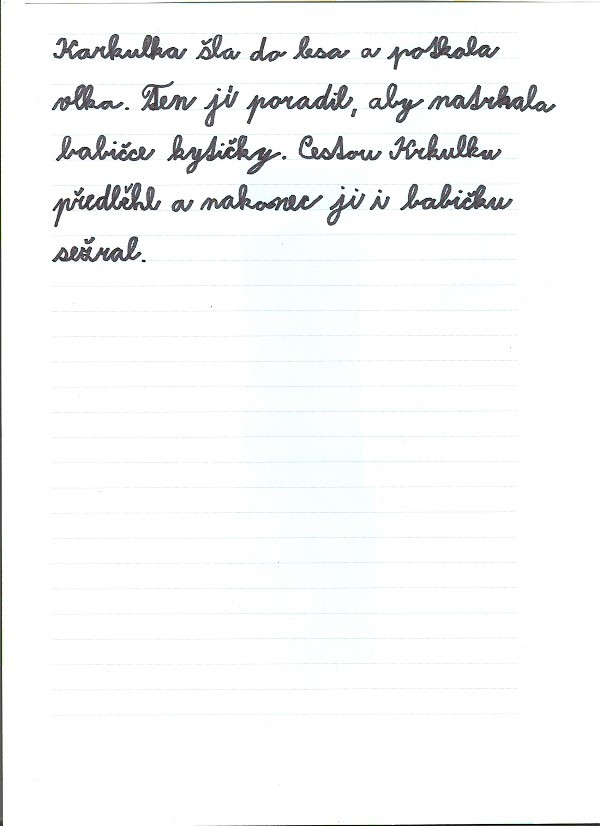 Karkulka šla do lesa a potkala
vlka. Ten jí poradil, aby natrkala
babičce kytičky. Cestou Krkulku
předběhl a nakonec ji i babičku
sežral.